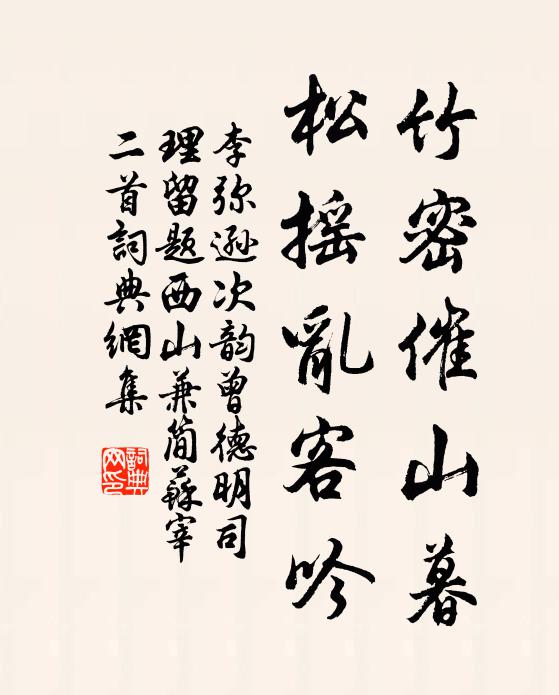 竹密催山暮
松摇亂客吟
李弥遜次韵曾德明司
理留题西山兼简蘇宰
二首詞典網集
詞典网印